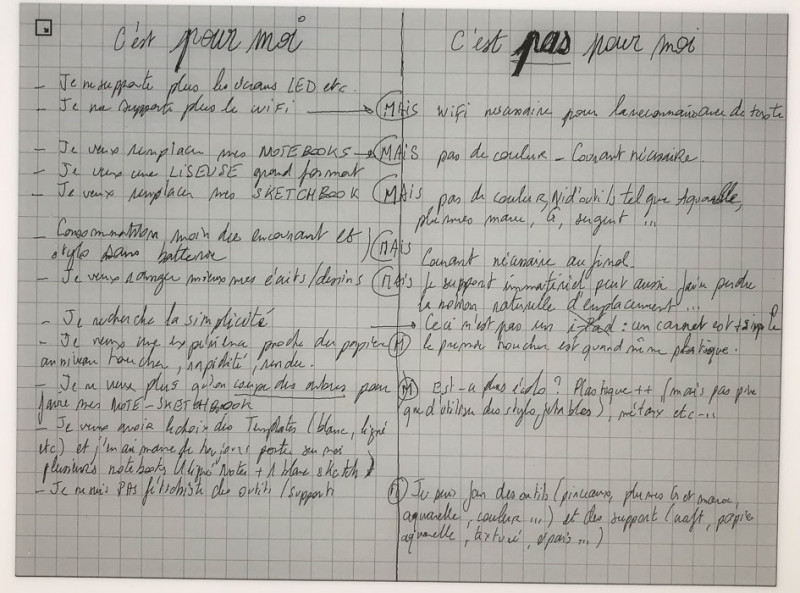 C'est pour moi
- Je ne supporte plus les écrans LED etc.
- Je ne supporte plus le wifi →
- Je veux remplacer mes NOTEBOOKS →
- Je veux une LISEUSE grand format
- Je veux remplacer mes SKETCHBOOK
- Consommation moindre en courant et
stylo sans batterie
- Je veux ranger mieux mes écrits/dessins
- Je recherche la simplicité →
- Je veux une expérience proche du papier
au niveau toucher, rapidité, rendu.
- Je ne veux plus qu'on coupe des arbres pour
faire mes NOTE-SKETCHBOOK
- Je veux avoir le choix des Templates (blanc, ligné
etc) et j'm'ai marre de toujours porter sur moi
plusieurs notebooks (1 ligné Notes + 1 blanc sketch)
- Je ne suis PAS fétichiste des outils/supports
C'est pas pour moi
MAIS wifi nécessaire pour la reconnaissance de texte
MAIS pas de couleur - Courant nécessaire.
MAIS pas de couleur, Ni d'outils tel que Aquarelle,
plumes
MAIS
Courant nécessaire au final.
MAIS le support immatériel peut aussi faire perdre
la notion naturelle d'emplacement...
Ceci n'est pas un ipad : un carnet est + simple
M le premier toucher est quand même plastique.
M Est-ce plus écolo ? Plastique ++ (mais pas pire
que d'utiliser des stylo jetables), métaux etc...
M Je suis fan des outils (pinceaux, plumes
aquarelle, couleur...) et des support (kraft, papier
aquarelle, texturé, épais...)